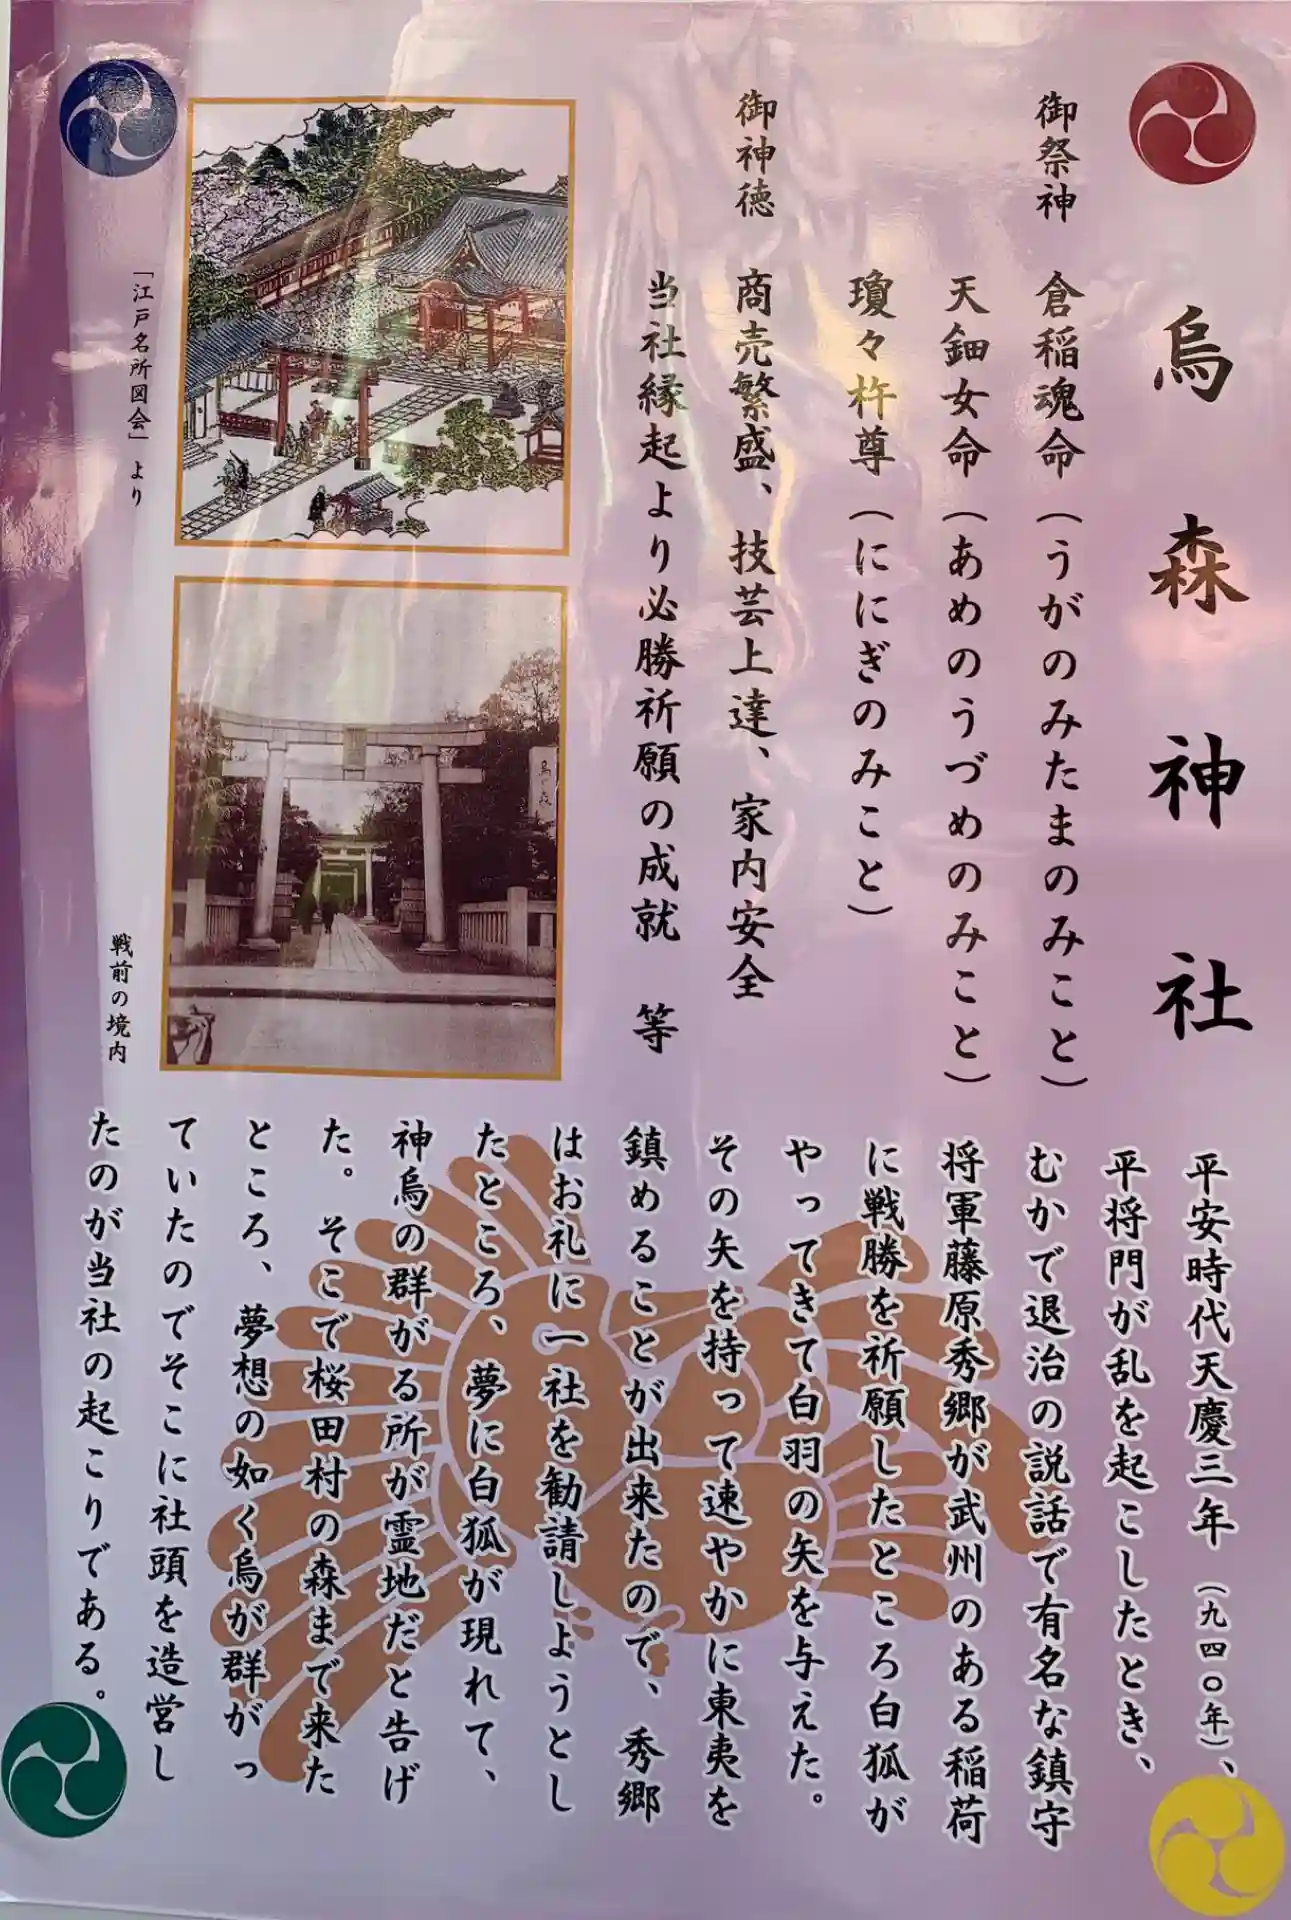 烏森神社
御祭神 倉稲魂命(うがのみたまのみこと)
天鈿女命(あめのうづめのみこと)
瓊々杵尊(ににぎのみこと)
御神徳 商売繁盛、技芸上達、家内安全
当社縁起より必勝祈願の成就 等
「江戸名所図会」より
戦前の境内
平安時代天慶三年(九四〇年)、
平将門が乱を起こしたとき、
むかで退治の説話で有名な鎮守
将軍藤原秀郷が武州のある稲荷
に戦勝を祈願したところ白狐が
やってきて白羽の矢を与えた。
その矢を持って速やかに東夷を
鎮めることが出来たので、秀郷
はお礼に一社を勧請しようとし
たところ、夢に白狐が現れて、
神烏の群がる所が霊地だと告げ
た。そこで桜田村の森まで来た
ところ、夢想の如く烏が群がっ
ていたのでそこに社頭を造営し
たのが当社の起こりである。